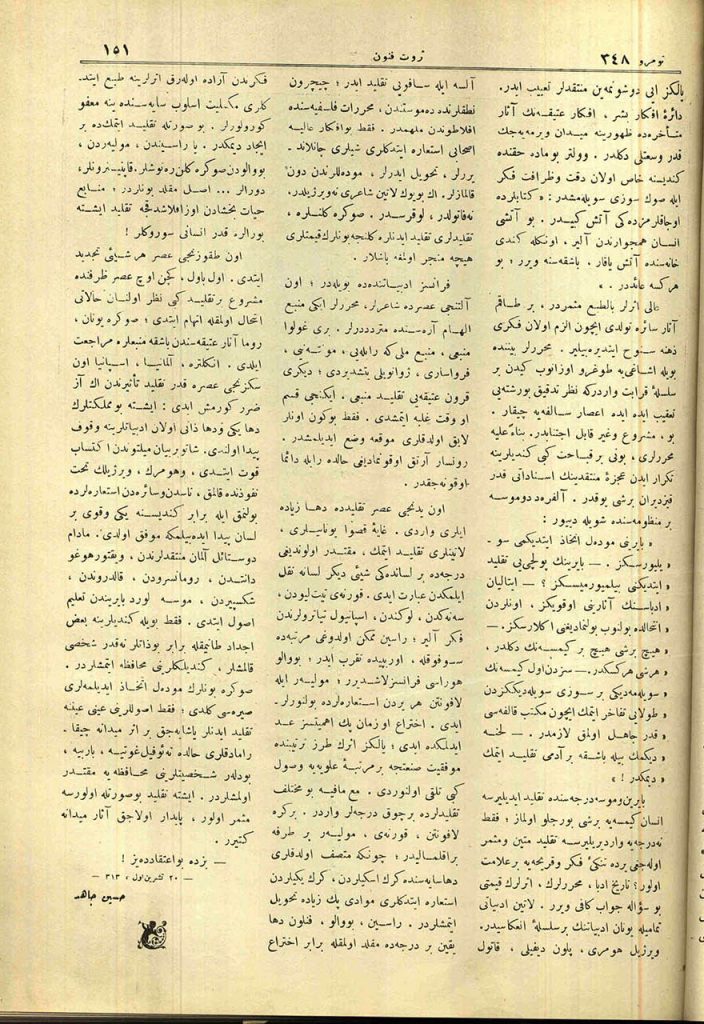 نومرو ٣٤٨
ثروت فنون
١٥١
يالكز ايى دوشونه‌مين منتقدلر تعييب ايدر.
دائرهٔ افكار بشر ، افكار عتيقه‌نك آثار
متأخره‌ده ظهورينه ميدان ويرميه‌جك
قدر وسعتلى دكلدر . وولتر بوماده حقنده
كنديسنه خاص اولان دقت وظرافت فكر
ايله صوك سوزى سويله‌مشدر : « كتابلرده
اوجاقلرمزده‌كى آتش كبيدر . بو آتشى
انسان همجوارندن آلير ، اونكله كندى
خانه‌سنده آتش ياقار ، باشقه‌سنه ويرر ؛ بو
هركسه عائددر . »
عالى اثرلر بالطبع مثمردر ، بر طاقم
آثار سائره تولدى ايچون الزم اولان فكرى
ذهنه سنوح ايتديره‌بيلير . محررلر بيننده
بويله اشاغى‌يه طوغرو اوزانوب كيدن بر
سلسلهٔ قرابت واردركه نظر تدقيق بورشته‌يى
تعقيب ايده ايده اعصار سالفه‌يه چيقار .
بو ، مشروع وغير قابل اجتنابدر. بناءً عليه
محررلرى ، بونى بر قباحت كبى كنديلرينه
تكرار ايدن عجزهٔ منتقدينك اسناداتى قدر
قيزديران برشى يوقدر . آلفره‌دوموسه
بر منظومه‌سنده شويله دييور :
« بايرنى مودل اتخاذ ايتديكمى سو ـ
« يليورسكز . — بايرنك پولچى‌يى تقليد
« ايتديكنى بيلميورميسكز ؟ — ايتاليان
« ادباسنك آثارنى اوقويكز ، اونلردن
« انتحالده بولنوب بولنمادیغنى اكلارسكز. —
« هيچ برشى هيچ بر كيمسه‌نك دكلدر ،
« هرشى هركسكدر. — سزدن اول كيمسه‌نك
« سويله‌مديكى بر سوزى سويله‌ديككزدن
« طولايى تفاخر ايتمك ايچون مكتب قالفه‌سى
« قدر جاهل اولمق لازمدر . — لخنه
« ديكمك بيله باشقه بر آدمى تقليد ايتمك
« ديمكدر ! »
بايرن‌وموسه درجه‌سنده تقليد ايديليرسه
انسان كيمسه‌يه برشى بورجلو اولماز ؛ فقط
نه‌درجه‌يه وارديريليرسه تقليد متين ومثمر
اوله‌جغى يرده تننكئ فكر وقريحه‌يه بر علامت
اولور ؟ تاريخ ادبا ، محررلرك ، اثرلرك قيمتى
بو سؤاله جواب كافى ويرر . لاتين ادبياتى
تماميله يونان ادبياتنك بر سلسلهٔ انعكاسيدر.
ويرژيل هومرى ، پلوت ديفيلى ، قاتول
آلسه ايله سافويى تقليد ايدر ؛ چيچرون
نطقلرنده ده‌موستندن ، محررات فلسفيه‌سنده
افلاطوندن ملهمدر . فقط بوافكار عاليه
اصحابى استعاره ايتدكلرى شيلرى جانلاند ـ
يررلر ، تحويل ايدرلر ، مودللرندن دون
قالمازلر. اك بويوك لاتين شاعرى نه‌ويرژيلدر،
نه‌قاتولدر ، لوقرسدر . صوكره كلنلره ،
تقليدلرى تقليد ايدنلره كلنجه بونلرك قيمتلرى
هيچه منجر اولمغه باشلار .
فرانسز ادبياتنده‌ده بويله‌در ؛ اون
آلتنجى عصرده شاعرلر ، محررلر ايكى منبع
الهام آره‌سنده مترددرلر . برى غولوا
منبعى ، منبع ملى كه رابله‌يى ، مونته‌نى ،
فرواسارى ، ژوانويلى يتشديردى ؛ ديكرى
قرون عتيقه‌يى تقليد منبعى . ايكنجى قسم
او وقت غلبه ايتمشدى . فقط بوكون اونلر
لايق اولدقلرى موقعه وضع ايديلمشدر .
رونسار آرتق اوقونمادیغى حالده رابله دائما
اوقونه‌جقدر.
اون يدنجى عصر تقليدده دها زياده
ايلرى واردى . غايهٔ قصوا يونانيلرى ،
لاتينلرى تقليد ايتمك ، مقتدر اولونديغى
درجه‌ده بر لسانده‌كى شيئى ديكر لسانه نقل
ايلمكدن عبارت ايدى . قورنه‌ى تيت‌ليودن ،
سه‌نه‌كدن ، لوكندن ، اسپانيول تياترولرندن
فكر آلير ؛ راسين ممكن اولدوغى مرتبه‌ده
سوفوقله ، اورپيده تقرب ايدر ؛ بووالو
هوراسى فرانسزلاشديرر ؛ موليه‌ر ايله
لافونتن هر يردن استعاره‌لرده بولنورلر ـ
ايدى . اختراع اوزمان پك اهميتسز عد
ايدلمكده ايدى ؛ يالكز اثرك طرز ترتيبنده
موفقيت صنعتجه بر مرتبهٔ علويه‌يه وصول
كبى تلقى اولنوردى . مع مافيه بو مختلف
تقليدلرده برچوق درجه‌لر واردر . بركره
لافونتن ، قورنه‌ى ، موليه‌ر بر طرفه
براقلماليدر ؛ چونكه متصف اولدقلرى
دهاسايه‌سنده كرك اسكيلردن ، كرك يكيلردن
استعاره ايتدكلرى موادى پك زياده تحويل
ايتمشلردر . راسين ، بووالو ، فنلون دها
يقين بر درجه‌ده مقلد اولمقله برابر اختراع
فكرندن آزاده اوله‌رق اثرلرينه طبع ايتد ـ
كلرى مكمليت اسلوب سايه‌سنده ينه معفو
كورولورلر . بو صورتله تقليد ايتمك‌ده بر
ايجاد ديمكدر . يا راسيندن ، موليه‌ردن ،
بووالودن صوكره كلن ره‌نوشلر، قابنيسترونلر،
دورالر ... اصل مقلد بونلردر ؛ منابع
حيات بخشادن اوزاقلاشدقجه تقليد ايشته
بورالره قدر انسانى سوروكلر !
اون طقوزنجى عصر هر شيئى تجديد
ايتدى . اول باول ، كچن اوچ عصر ظرفنده
مشروع بر تقليد كبى نظر اولنان حالاتى
انتحال اولمقله اتهام ايتدى ؛ صوكره يونان ،
روما آثار عتيقه‌سندن باشقه منبعلره مراجعت
ايلدى . انكلتره ، آلمانيا ، اسپانيا اون
سكزنجى عصره قدر تقليد تأثيرندن اك آز
ضرر كورمش ايدى : ايشته بو مملكتلرك
دها يكى ودها ذاتى اولان ادبياتلرينه وقوف
پيدا اولندى. شاتوبريان ميلتوندن اكتساب
قوت ايتدى ، وهومرك ، ويرژيلك تحت
نفوذنده قالمق ، تاسدن‌وسائره‌دن استعاره‌لرده
بولنمق ايله برابر كنديسنه يكى وقوى بر
لسان پيدا ايده‌بيلمكه موفق اولدى. مادام
دوستائل آلمان منتقدلرندن ، ويقتورهوغو
دانتدن ، رومانسرودن ، قالدروندن ،
شكسپيردن ، موسه لورد بايرندن تعليم
اصول ايتدى . فقط بويله كنديلرينه بعض
اجداد طانيمقله برابر بوذاتلر نه‌قدر شخصى
قالمشلر ، كنديلكلرينى محافظه ايتمشلردر .
صوكره بونلرك مودل اتخاذ ايديلمه‌لرى
صيره‌سى كلدى ؛ فقط اصوللرينى عينى عينه
تقليد ايدنلر ياشايه‌جق بر اثر ميدانه چيقا ـ
رامادقلرى حالده ته‌ئوفيل‌غوتيه ، باربيه ،
بودلر شخصيتلرينى محافظه‌يه مقتدر
اولمشلردر . ايشته تقليد بوصورتله اولورسه
مثمر اولور ، پايدار اولاجق آثار ميدانه
كتيرر .
— بزده بواعتقاددەيز !
— ٢٠ تشرين‌اول ، ٣١٣ —
حسين جاهد